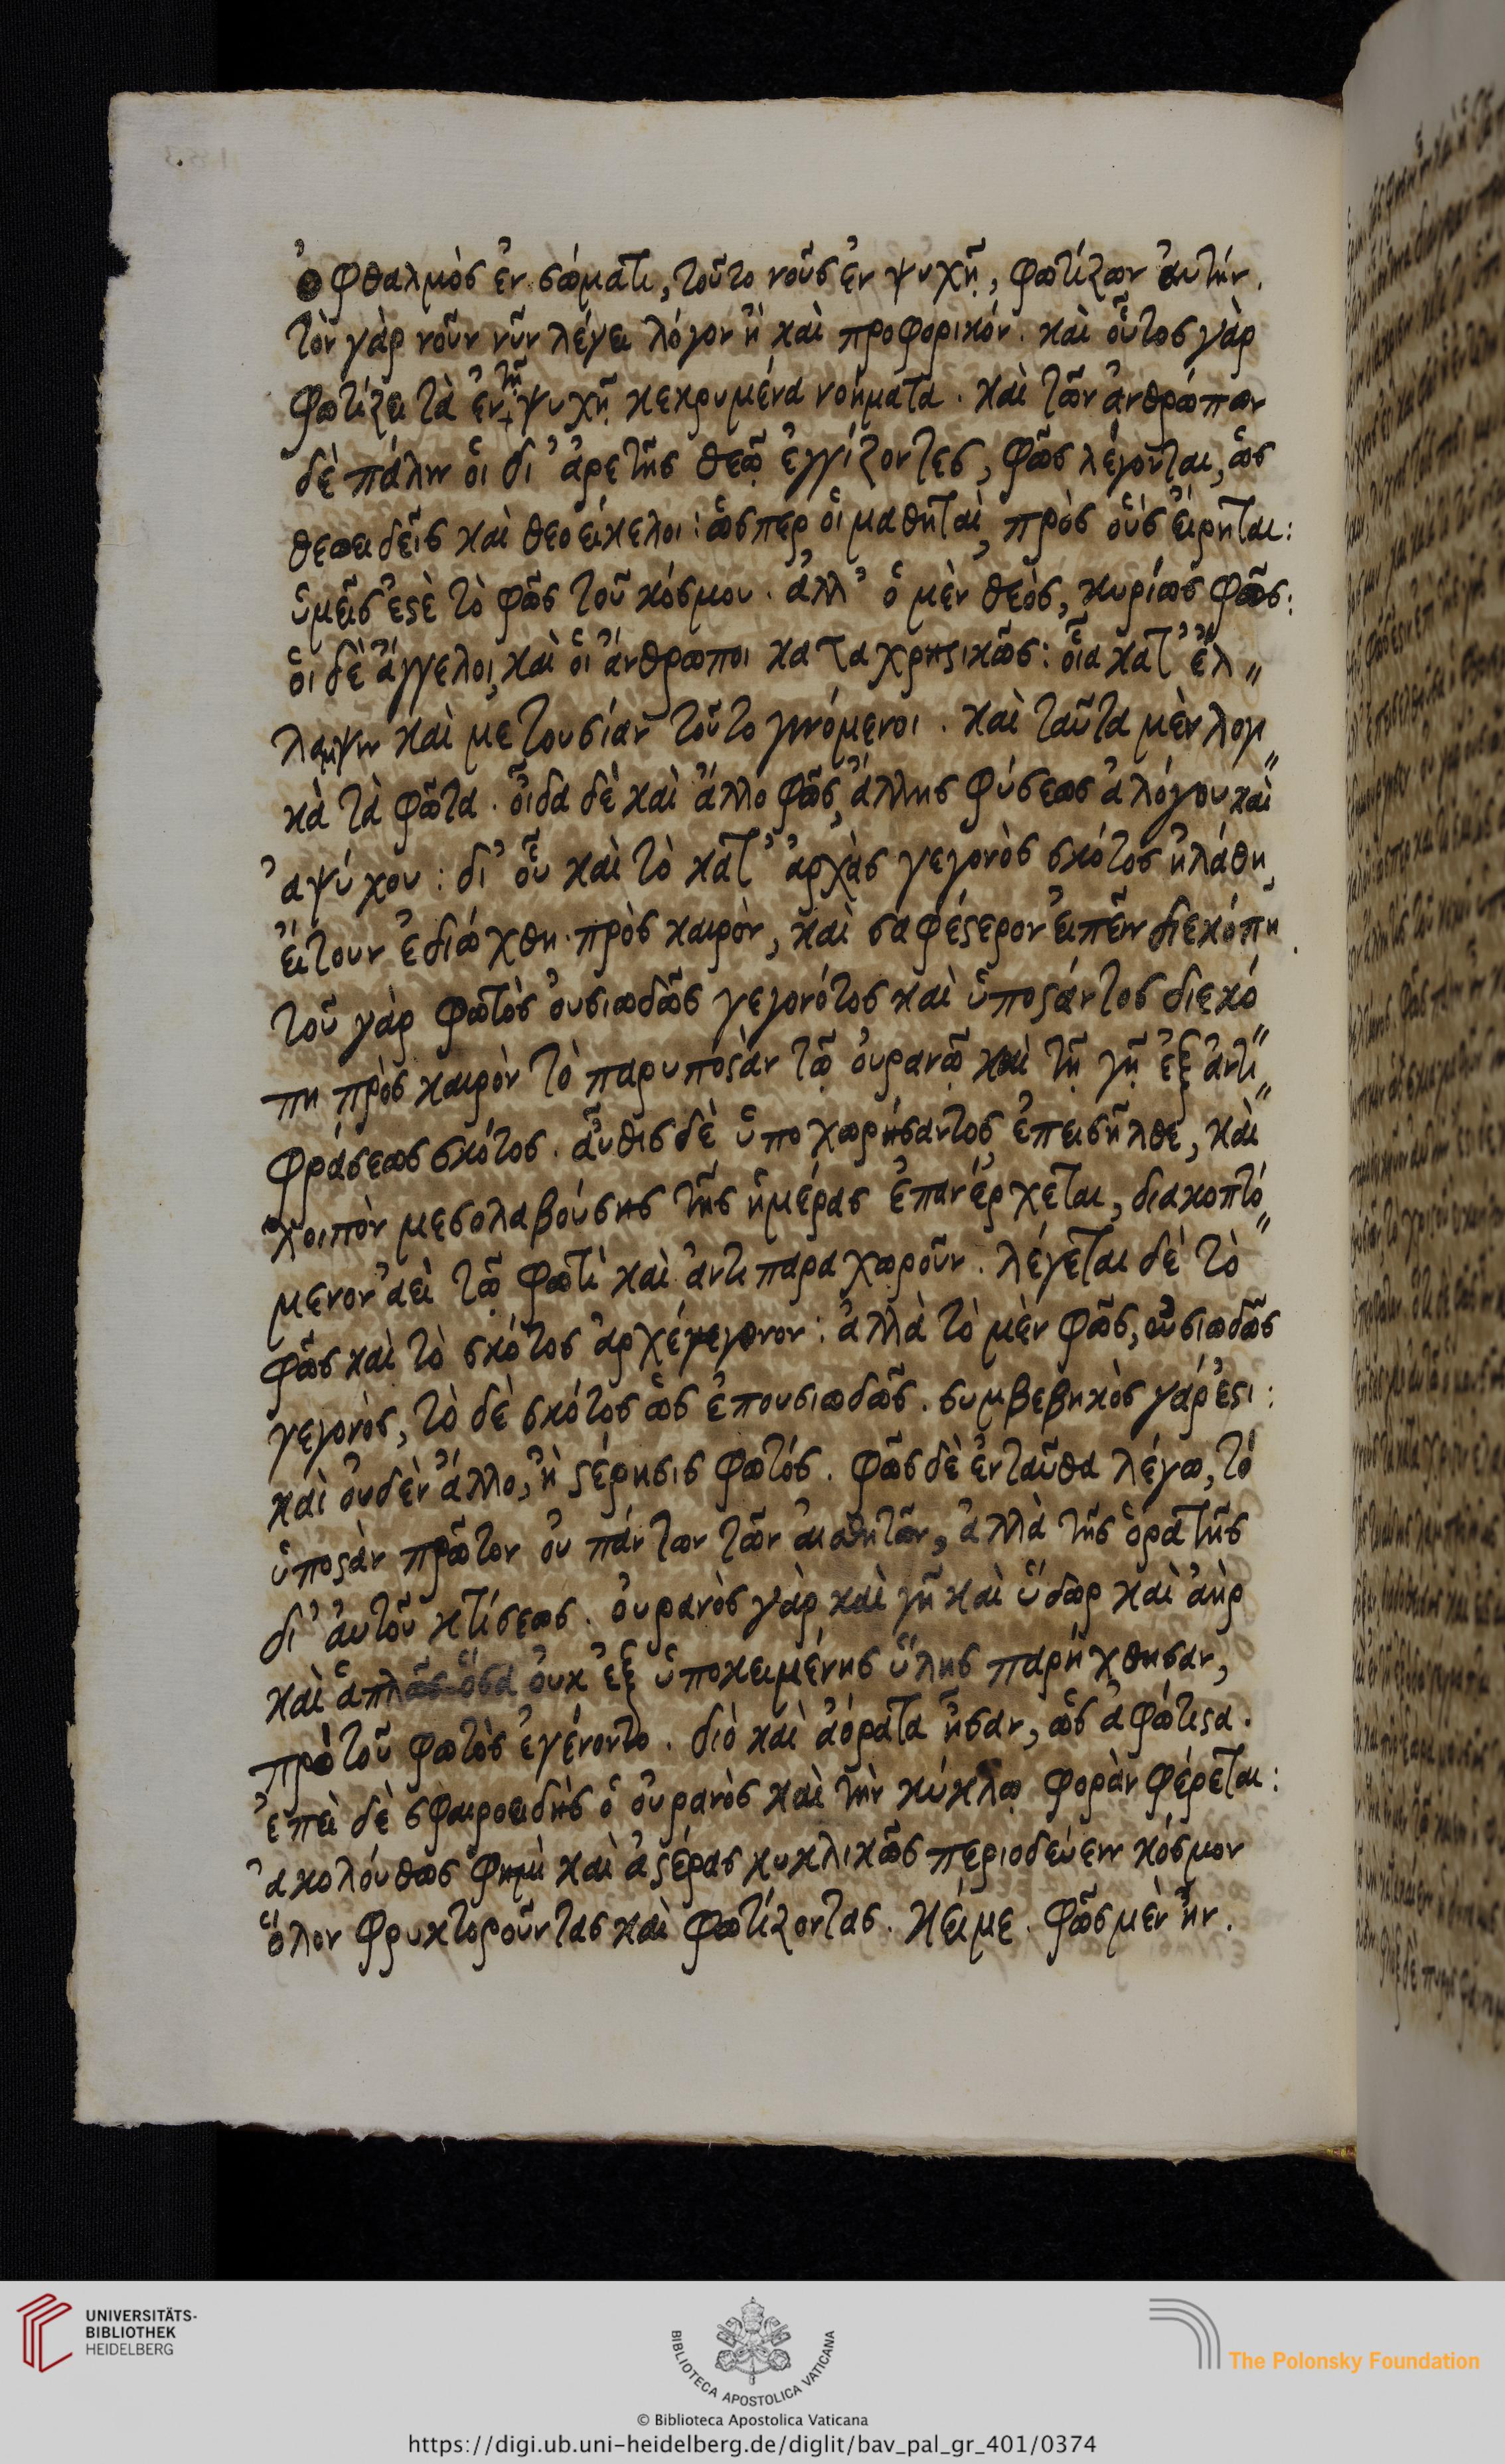 ὀφθαλμὸς ἐν σώματι, τοῦτο νοῦς ἐν ψυχῇ, φωτίζων ἀυτήν.
τὸν γὰρ νοῦν νῦν λέγει λόγον ἢ καὶ προφορικόν. καὶ οὗτος γὰρ
φωτίζει τὰ ἐν τῇ ψυχῇ κεκρυμένα νοήματα. καὶ τῶν ἀνθρώπων
δὲ πάλιν ὁι δι’ ἀρετῆς θεῶ ἐγγίζοντες, φῶς λέγονται, ὡς
θεοειδεῖς καὶ θεοείκελοι: ὥσπερ ὁι μαθηταὶ, πρὸς οὓς ἐίρηται:
ὑμεῖς ἐϛὲ τὸ φῶς τοῦ κόσμου. ἀλλ’ ὁ μὲν θεὸς, κυρίως φῶς:
ὁι δὲ ἄγγελοι, καὶ ὁι ἄνθρωποι καταχρηϛικῶς: οἷα κατ’ ἔλ〃
λαμψιν καὶ μετουσίαν τοῦτο γινόμενοι. καὶ ταῦτα μὲν λογι〃
κὰ τὰ φῶτα. οἶδα δὲ καὶ ἄλλο φῶς, ἄλλης φύσεως ἀλόγου καὶ
ἀψύχου: δι’ οὗ καὶ τὸ κατ’ ἀρχὰς γεγονὸς σκότος ἠλάθη,
ἔιτουν ἐδιώχθη πρὸς καιρὸν, καὶ σαφέϛερον ἐιπεῖν διεκόπη.
τοῦ γὰρ φωτὸς ὀυσιωδῶς γεγονότος καὶ ὑποϛάντος διεκό〃
πη πρὸς καιρὸν τὸ παρυποϛὰν τῷ ὀυρανῷ καὶ τῇ γῇ ἐξ ἀντι〃
φράσεως σκότος. ἆυθις δὲ ὑποχωρήσαντος, ἐπεισῆλθε, καὶ
λοιπὸν μεσολαβούσης τῆς ἡμέρας ἐπανέρχεται, διακοπτό〃
μενον ἀεὶ τῷ φωτὶ καὶ ἀντιπαραχωροῦν. λέγεται δὲ τὸ
φῶς καὶ τὸ σκότος ἀρχέγονον: ἀλλὰ τὸ μὲν φῶς, ὀυσιωδῶς
γεγονὸς, τὸ δὲ σκότος ὡς ἐπουσιωδῶς. συμβεβηκὸς γάρ ἐϛι:
καὶ ὀυδὲν ἄλλο, ἢ ϛέρησις φωτός. φῶς δὲ ἐνταῦθα λέγω, τὸ
ὑποϛὰν πρῶτον ὀυ πάντων τῶν ἀισθητῶν, ἀλλὰ τῆς ὁρατῆς
δι’ ἀυτοῦ κτίσεως. ὀυρανὸς γὰρ καὶ γῆ καὶ ὕδωρ καὶ ἀὴρ
καὶ ἁπλῶς ὅσα ὀυκ ἐξ ὑποκειμένης ὕλης παρήχθησαν,
πρὸ τοῦ φωτὸς ἐγένοντο. διὸ καὶ ἀόρατα ἦσαν, ὡς ἀφώτιϛα.
ἐπεὶ δὲ σφαιροειδὴς ὁ ὀυρανὸς καὶ τὴν κύκλῳ φορὰν φέρεται:
ἀκολούθως φημὶ καὶ ἀϛέρας κυκλικῶς περιοδεύειν κόσμον
ὅλον φρυκτοροῦντας καὶ φωτίζοντας. Κείμε. φῶς μὲν ἦν.
UNIVERSITÄTS-
BIBLIOTHEK
HEIDELBERG
BIBLIOTECA APOSTOLICA VATICANA
The Polonsky Foundation
© Biblioteca Apostolica Vaticana
https://digi.ub.uni-heidelberg.de/diglit/bav_pal_gr_401/0374